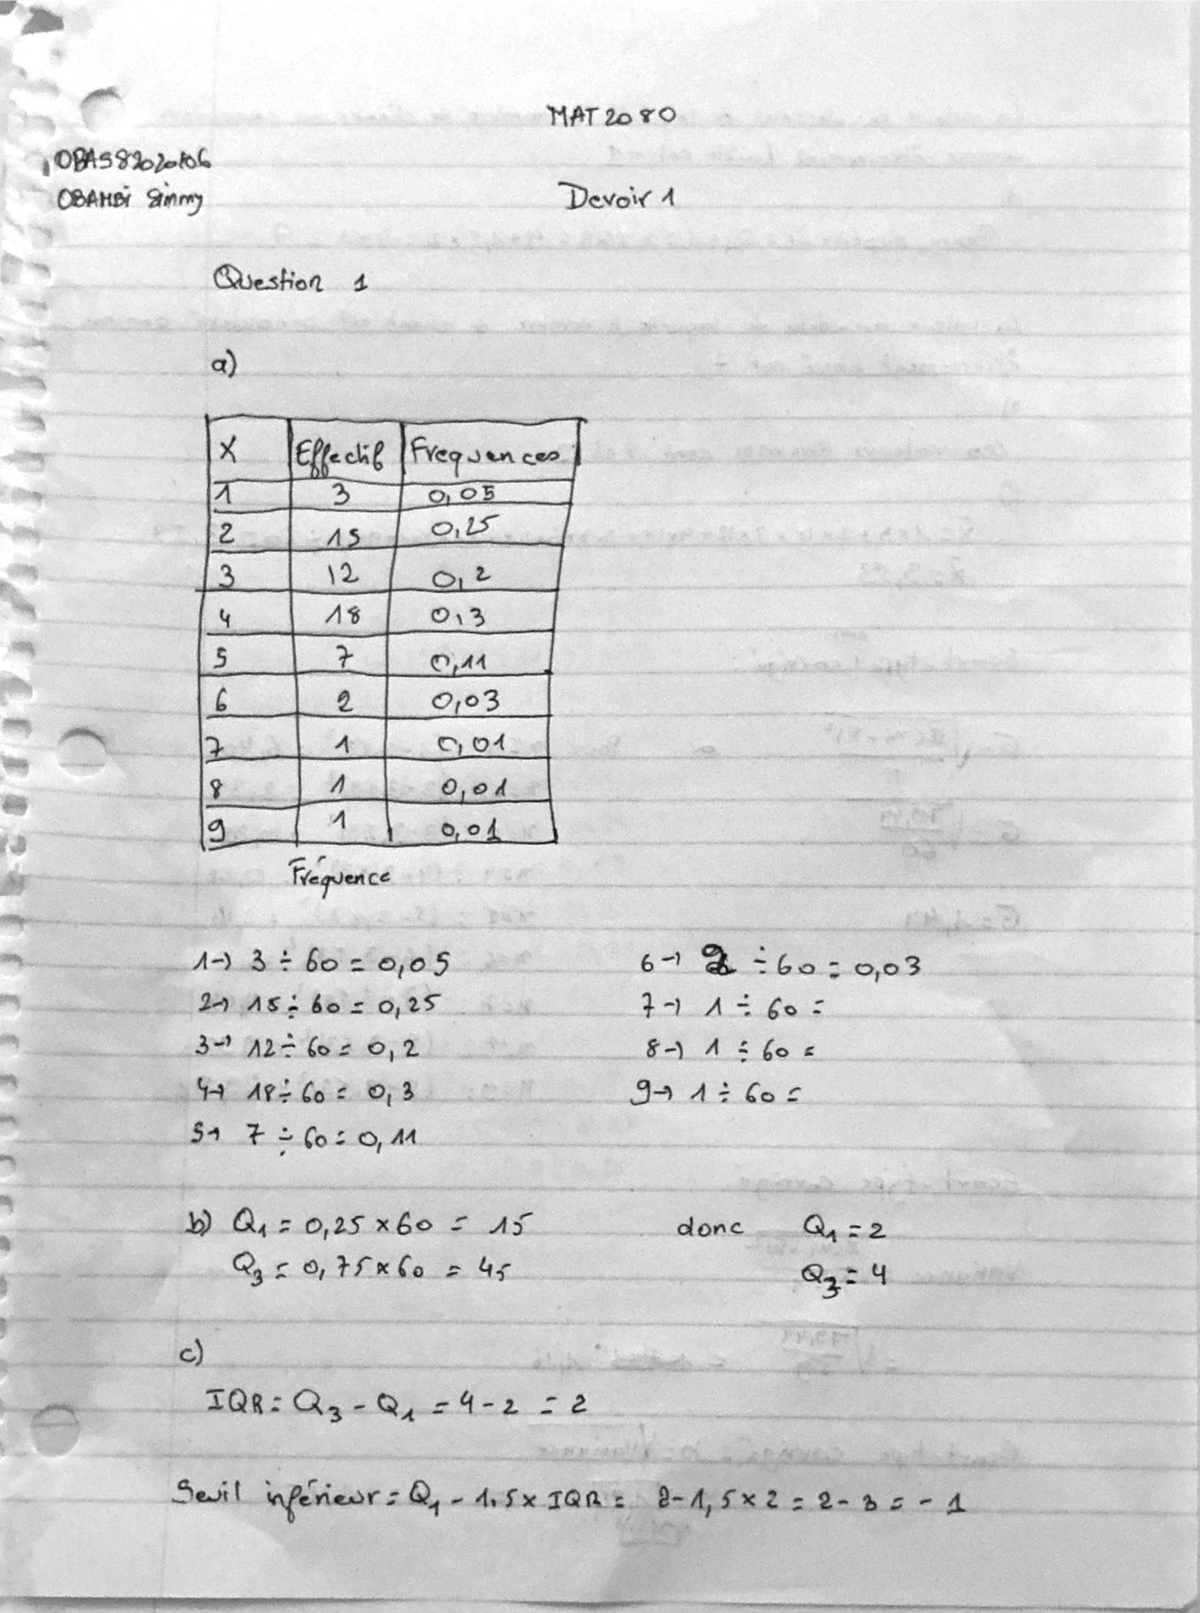 MAT2080
OBAS82020106
OBAMBi Simmy
Devoir 1
Question 1
a)
X Effectif Frequences
1 3 0,05
2 15 0,25
3 12 0,2
4 18 0,3
5 7 0,11
6 2 0,03
7 1 0,01
8 1 0,01
9 1 0,01
Fréquence
1→ 3 ÷ 60 = 0,05
2→ 15 ÷ 60 = 0,25
3→ 12 ÷ 60 = 0,2
4→ 18 ÷ 60 = 0,3
5→ 7 ÷ 60 = 0,11
6→ 2 ÷ 60 = 0,03
7→ 1 ÷ 60 =
8→ 1 ÷ 60 =
9→ 1 ÷ 60 =
b) Q1 = 0,25 × 60 = 15 donc Q1 = 2
Q3 = 0,75 × 60 = 45 Q3 = 4
c)
IQR = Q3 - Q1 = 4 - 2 = 2
Seuil inférieur = Q1 - 1.5 × IQR = 2 - 1,5 × 2 = 2 - 3 = - 1